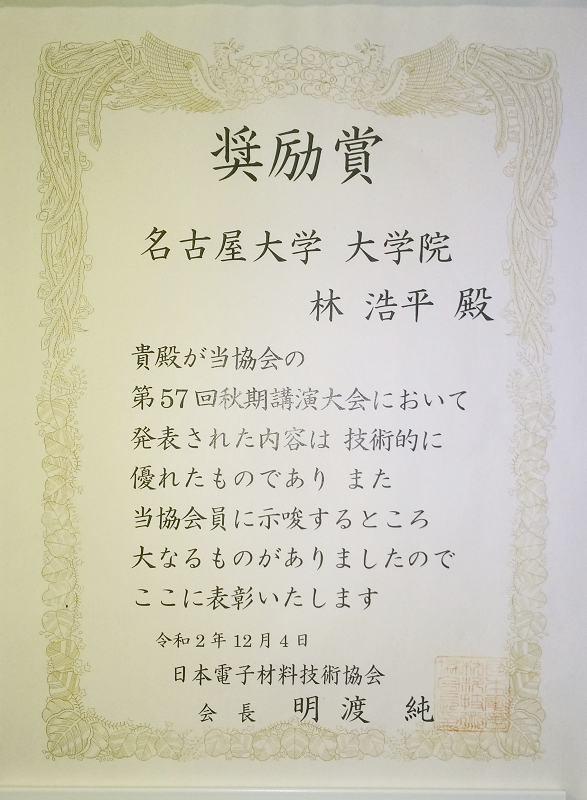 奨励賞
名古屋大学 大学院
林 浩平 殿
貴殿が当協会の
第57回秋期講演大会において
発表された内容は 技術的に
優れたものであり また
当協会員に示唆するところ
大なるものがありましたので
ここに表彰いたします
令和2年12月4日
日本電子材料技術協会
会長 明渡 純